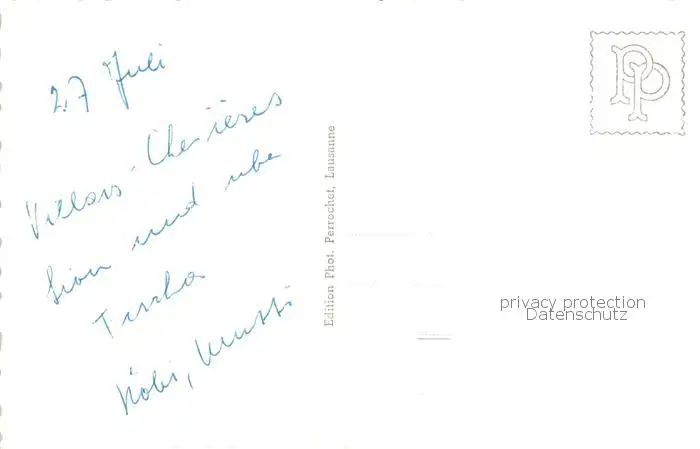 27 Juli
Villars-Chesières
Sion und
Kobi, Mutti
Edition Phot. Perrochet, Lausanne
PP
privacy protection
Datenschutz